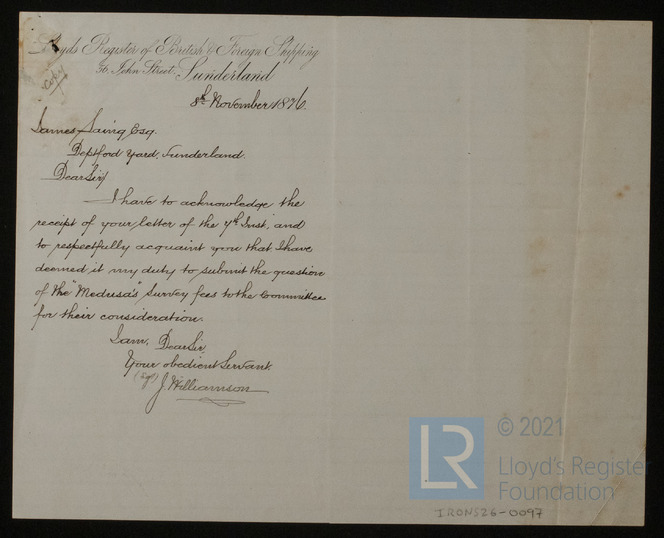 Lloyds Register of British & Foreign Shipping
56, John Street, Sunderland
Copy
8th November 1876.
James Laing Esq.
Deptford Yard, Sunderland.
Dear Sir,
I have to acknowledge the
receipt of your letter of the 7th Inst, and
to respectfully acquaint you that I have
deemed it my duty to submit the question
of the "Medusa's" Survey fees to the Committee
for their consideration.
I am, Dear Sir,
Your obedient Servant
(sgd) J. Williamson
LR
© 2021
Lloyd's Register
Foundation
IRONS26-0097